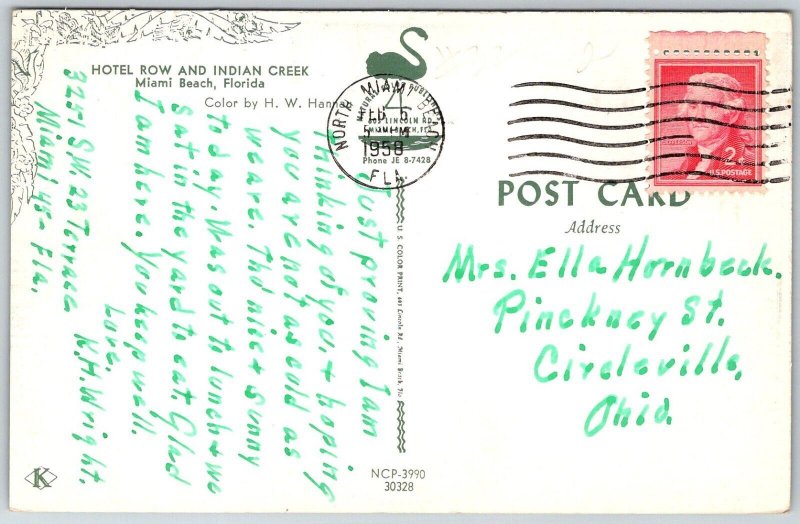 HOTEL ROW AND INDIAN CREEK
Miami Beach, Florida
Color by H. W. Hanna
NORTH MIAMI
FLA
1958
PM
LINCOLN RD
Phone JE 8-7428
2¢
U.S. POSTAGE
POST CARD
Address
Mrs. Ella Hornbeck.
Pinckney St.
Circleville,
Ohio.
Just proving I am
thinking of you, & hoping
you are not as cold as
we are. Tho nice & sunny
to day. Was out to lunch & we
sat in the yard to eat. Glad
I am here. You keep well.
Love,
N.H. Wright.
3251 S.W. 23 Terrace
Miami 45 - Fla.
U. S. COLOR PRINT, 605 Lincoln Rd., Miami Beach, Fla
NCP-3990
30328
K